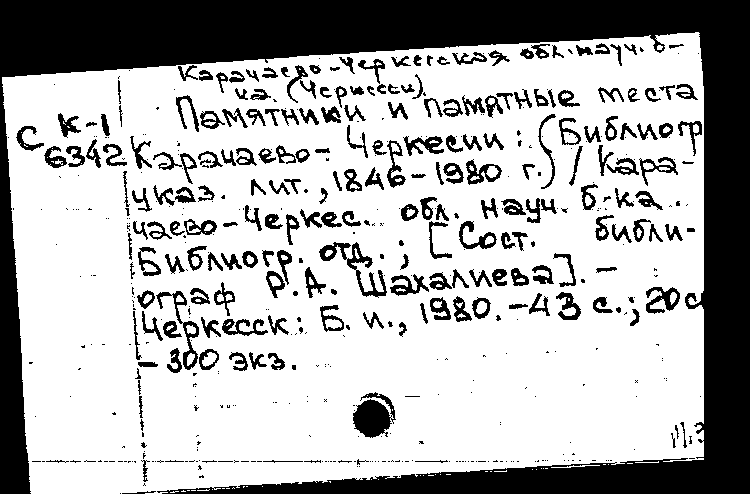 Карачаево-Черкесская обл. науч. б-
ка (Черкесск).
Памятники и памятные места
С К-1
6342
Карачаево-Черкесии: (Библиогр
указ. лит., 1846-1980 г.) / Кара-
чаево-Черкес. обл. науч. б-ка.
Библиогр. отд.; [Сост. библи-
ограф Р.А. Шахалиева]. -
Черкесск: Б. и., 1980. - 43 с.; 20 с
- 300 экз.